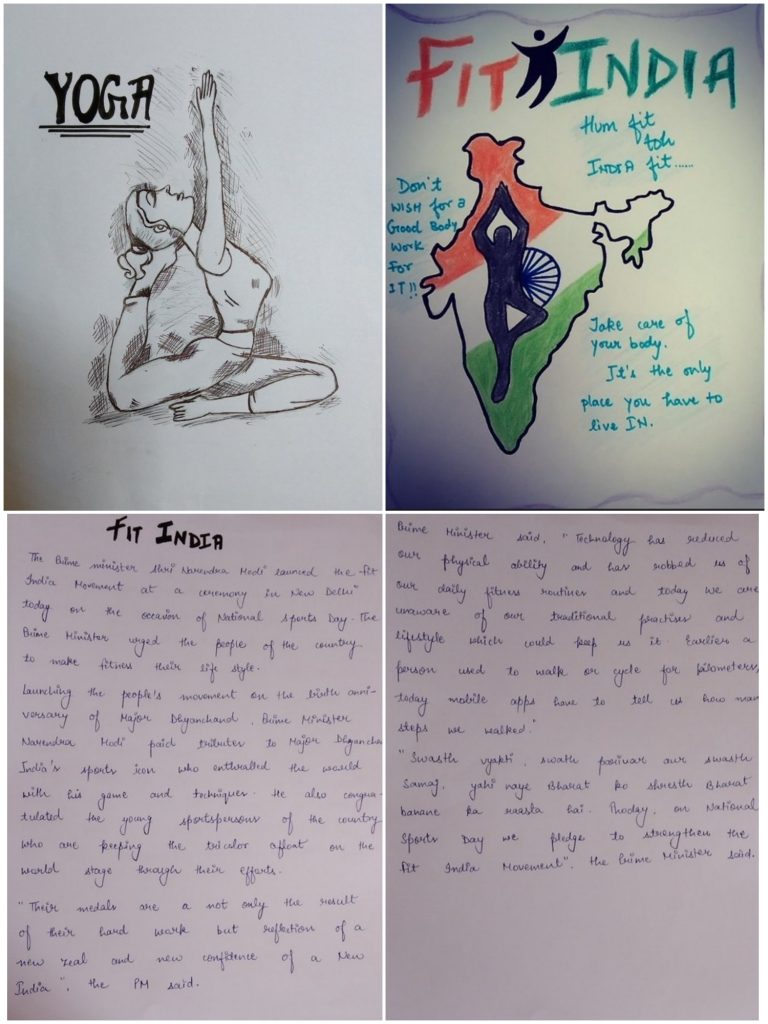 YOGA
FIT INDIA
Hum fit
toh
INDIA fit......
Don't
WISH for a
Good Body
Work
For
IT!!
Take care of
your body.
It's the only
place you have to
live IN.
FIT INDIA
The Prime minister shri Narendra Modi launced the fit
India Movement at a ceremony in New Delhi
today on the occasion of National Sports Day. The
Prime Minister urged the people of the country
to make fitness their life style.
Launching the people's movement on the birth anni-
versary of Major Dhyanchand, Prime Minister
Narendra Modi paid tributes to Major Dhyancha
India's sports icon who enthralled the world
with his game and techniques. He also congra-
tulated the young sportspersons of the country
who are keeping the tricolor afloat on the
world stage through their efforts.
"Their medals are a not only the result
of their hard work but reflection of a
new zeal and new confidence of a New
India", the PM said.
Prime Minister said, "Technology has reduced
our physical ability and has robbed us of
our daily fitness routines and today we are
unaware of our traditional practises and
lifestyle which could keep us it. Earlier a
person used to walk or cycle for kilometers,
today mobile apps have to tell us how man
steps we walked."
"Swasth vyakti, swath parivar aur swasth
Samaj, yahi naye Bharat ko shresth Bharat
banane ka raasta hai. Thoday, on National
Sports Day we pledge to strengthen the
Fit India Movement", the Prime Minister said.